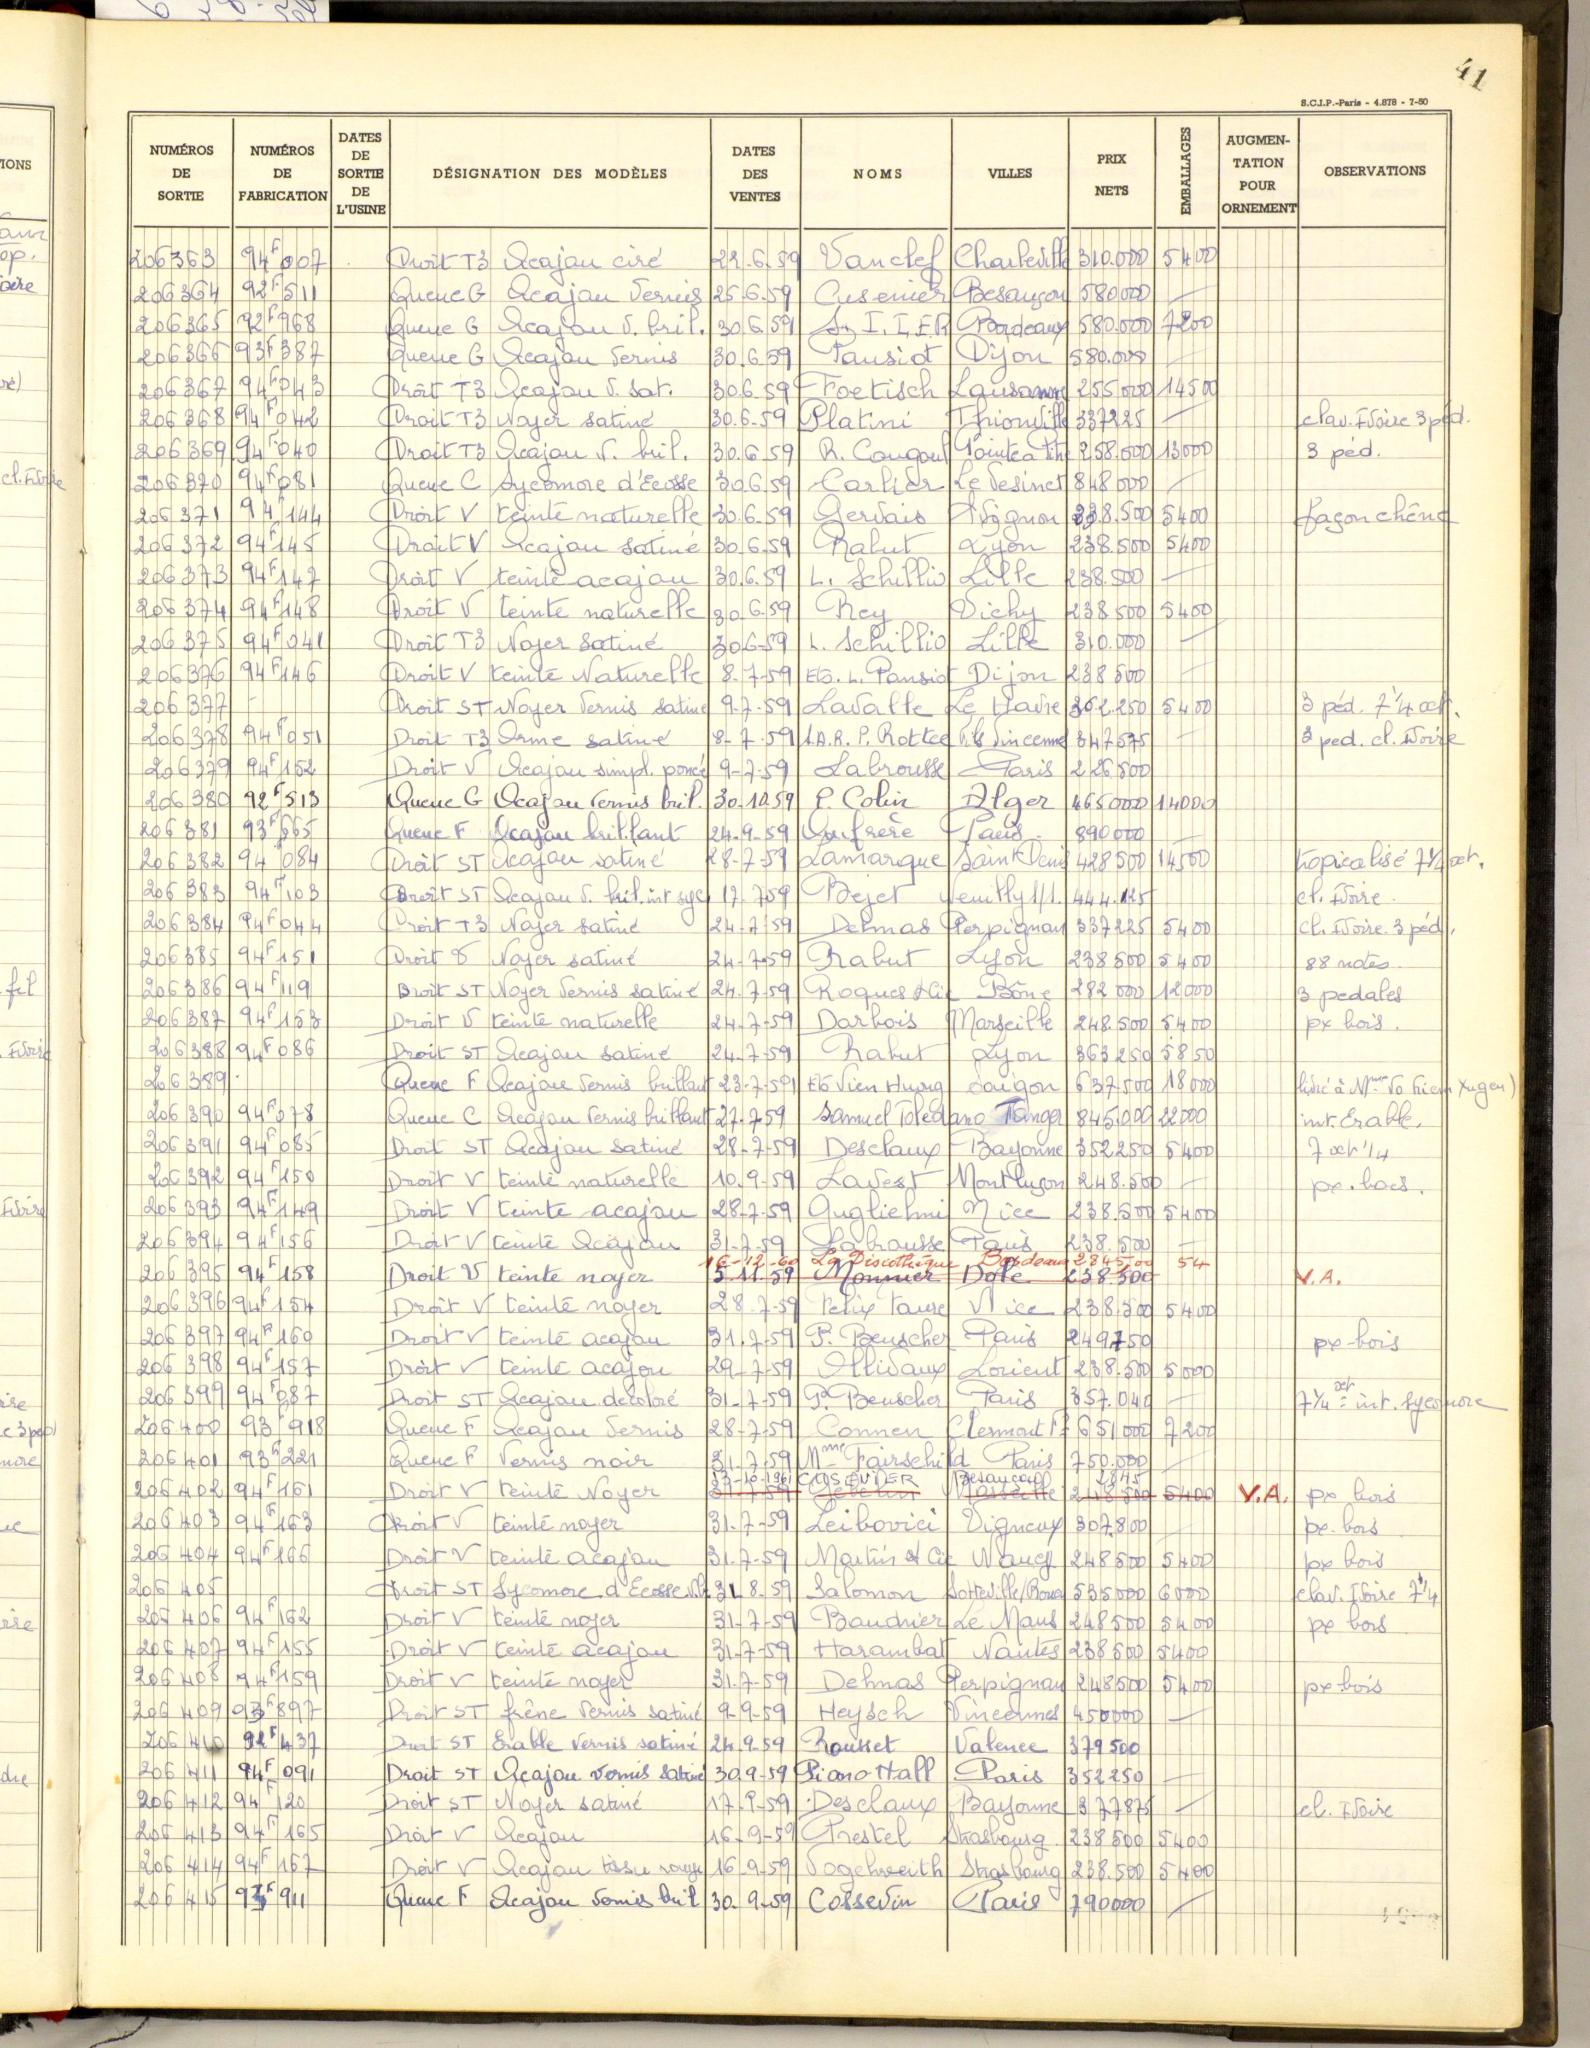 41
S.C.I.P.-Paris - 4.878 - 7-50
NUMÉROS DE SORTIE NUMÉROS DE FABRICATION DATES DE SORTIE DE L'USINE DÉSIGNATION DES MODÈLES DATES DES VENTES NOMS VILLES PRIX NETS EMBALLAGES AUGMENTATION POUR ORNEMENT OBSERVATIONS
206363 94F007 Droit T3 Acajou ciré 22.6.59 Vanclef Charleville 310.000 5400
206364 92F511 Queue G Acajou Vernis 25.6.59 Cusenier Besançon 580000 —
206365 92F968 Queue G Acajou V. bril. 30.6.59 Bordeaux 580.000 7200
206366 93F387 Queue G Acajou Vernis 30.6.59 Pansiot Dijon 580.000 —
206367 94F043 Droit T3 Acajou V. sat. 30.6.59 Foetisch Lausanne 255000 14500
206368 94F042 Droit T3 Noyer satiné 30.6.59 Platini Thionville 337225 — clav. Ivoire 3 péd.
206369 94F040 Droit T3 Acajou V. bril. 30.6.59 R. Pointe à Pitre 258.000 13000 3 péd.
206370 94F081 Queue C Sycomore d'Ecosse 30.6.59 Carlier Le Vesinet 848000 —
206371 94F144 Droit V teinte naturelle 30.6.59 Gervais Avignon 238.500 5400 façon chêne
206372 94F145 Droit V Acajou satiné 30.6.59 Rabut Lyon 238.500 5400
206373 94F147 Droit V teinté acajou 30.6.59 L. Schillio Lille 238.500 —
206374 94F148 Droit V teinte naturelle 30.6.59 Rey Vichy 238500 5400
206375 94F041 Droit T3 Noyer satiné 30.6.59 L. Schillio Lille 310.000 —
206376 94F146 Droit V teinté Naturelle 8.7.59 Ets. L. Pansiot Dijon 238500 —
206377 - Droit ST Noyer Vernis satiné 9.7.59 Lavalle Le Havre 362.250 5400 3 péd. 7 1/4 oct.
206378 94F051 Droit T3 Orme satiné 8-7.59 Vincennes 347575 — 3 ped. cl. Ivoire
206379 94F152 Droit V Acajou simpl. poncé 9-7-59 Labrousse Paris 226.500
206380 92F513 Queue G Acajou Vernis bril. 30.10.59 P. Colin Alger 465000 14000
206381 93F665 Queue F Acajou brillant 24.9.59 Aufrère Paris 890000 —
206382 94F084 Droit ST Acajou satiné 28-7-59 Lamarque Saint Denis 428500 14500 tropicalisé 7 1/4 oct.
206383 94F103 Droit ST Acajou V. bril. int syc. 17.7.59 Bejet Neuilly s/s. 444.125 cl. Ivoire
206384 94F044 Droit T3 Noyer satiné 24-7-59 Delmas Perpignan 337225 5400 cl. Ivoire 3 péd.
206385 94F151 Droit V Noyer satiné 24.7.59 Rabut Lyon 238500 5400 88 notes
206386 94F119 Droit ST Noyer Vernis satiné 24.7.59 Roques & Cie Bône 282000 12000 3 pedales
206387 94F153 Droit V teinte naturelle 24-7-59 Darbois Marseille 248.500 5400 px bois.
206388 94F086 Droit ST Acajou satiné 24.7-59 Rabut Lyon 363250 5850
206389 Queue F Acajou Vernis brillant 23.7.59 Ets Vien Huong Saigon 637500 18000 livré à Mme
206390 94F078 Queue C Acajou Vernis brillant 27.7.59 Samuel Toledano Tanger 845.000 22000 int. Erable.
206391 94F085 Droit ST Acajou satiné 28-7-59 Desclaux Bayonne 352250 5400 7 oct 1/4
206392 94F150 Droit V teinte naturelle 10.9-59 Lavest Montluçon 248.500 — px. bois.
206393 94F149 Droit V teinte acajou 28-7.59 Guglielmi Nice 238.500 5400
206394 94F156 Droit V teinté Acajou 31-7-59 Labrousse Paris 238.500 —
16-12-60 La Discothèque Bordeaux 2845,00 54
206395 94F158 Droit V teinte noyer 5.11.59 Monnier Dole 238.500 V.A.
206396 94F154 Droit V teinté noyer 28.7-59 Felix Faure Nice 238.500 5400
206397 94F160 Droit V teinté acajou 31.7-59 P. Beuscher Paris 249750 px bois
206398 94F157 Droit V teinté acajou 29-7-59 Allivaux Lorient 238.500 5000
206399 94F087 Droit ST Acajou décoloré 31-7-59 P. Beuscher Paris 357.040 — 7 1/4 oct - int. sycomore
206400 93F918 Queue F Acajou Vernis 28-7-59 Connen Clermont Fd 651000 7200
206401 93F221 Queue F Vernis noir 31.7-59 Mme Fairschild Paris 750.000 —
13-10-1961 CUSENIER Besançon 2845
206402 94F161 Droit V teinté Noyer 31-7-59 Marseille 248500 5400 V.A. px bois
206403 94F163 Droit V teinté noyer 31.7-59 Leibovici Vigneux 307.800 — px. bois
206404 94F166 Droit V teinté acajou 31.7-59 Martin & Cie Nancy 248500 5400 px bois
206405 Droit ST Sycomore d'Ecosse 31.8.59 Salomon Sotteville/Rouen 535000 6000 clav. Ivoire 7 1/4
206406 94F162 Droit V teinté noyer 31-7-59 Baudrier Le Mans 248500 5400 px bois
206407 94F155 Droit V teinté acajou 31-7-59 Harambat Nantes 238500 5400
206408 94F159 Droit V teinté noyer 31.7-59 Delmas Perpignan 248500 5400 px bois
206409 93F897 Droit ST frêne Vernis satiné 9-9-59 Heysch Vincennes 450000 —
206410 92F437 Droit ST Erable Vernis satiné 24.9.59 Rousset Valence 379500
206411 94F091 Droit ST Acajou vernis satiné 30.9-59 Piano Hall Paris 352250 —
206412 94F120 Droit ST Noyer satiné 17.9-59 Desclaux Bayonne 377875 — cl. Ivoire
206413 94F165 Droit V Acajou 16-9-59 Prestel Strasbourg 238500 5400
206414 94F167 Droit V Acajou tissu rouge 16-9-59 Vogelweith Strasbourg 238.500 5400
206415 93F911 Queue F Acajou Vernis bril 30.9-59 Cossevin Paris 790000 —